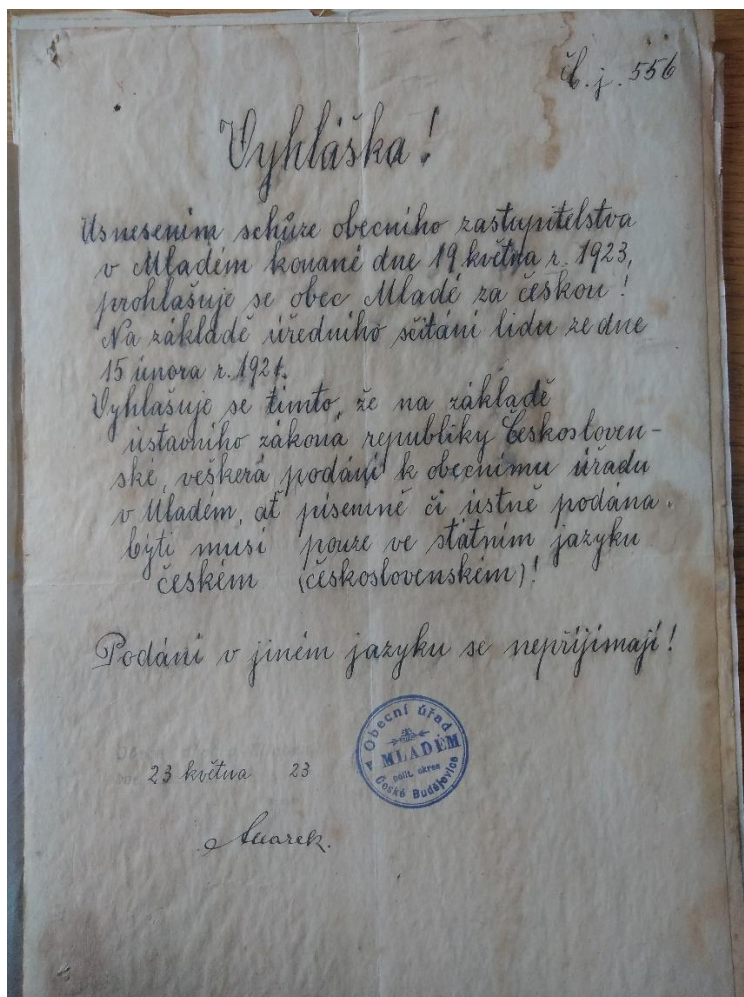 Č. j. 556
Vyhláška!
Usnesením schůze obecního zastupitelstva
v Mladém konané dne 19 května r. 1923,
prohlašuje se obec Mladé za českou!
Na základě úředního sčítání lidu ze dne
15 února r. 1921.
Vyhlašuje se tímto, že na základě
ústavního zákona republiky Českosloven-
ské, veškerá podání k obecnímu úřadu
v Mladém, ať písemně či ústně podána
býti musí pouze ve státním jazyku
českém (československém)!
Podání v jiném jazyku se nepřijímají!
Obecní úřad
v MLADÉM
polit. okres
České Budějovice
23 května 23